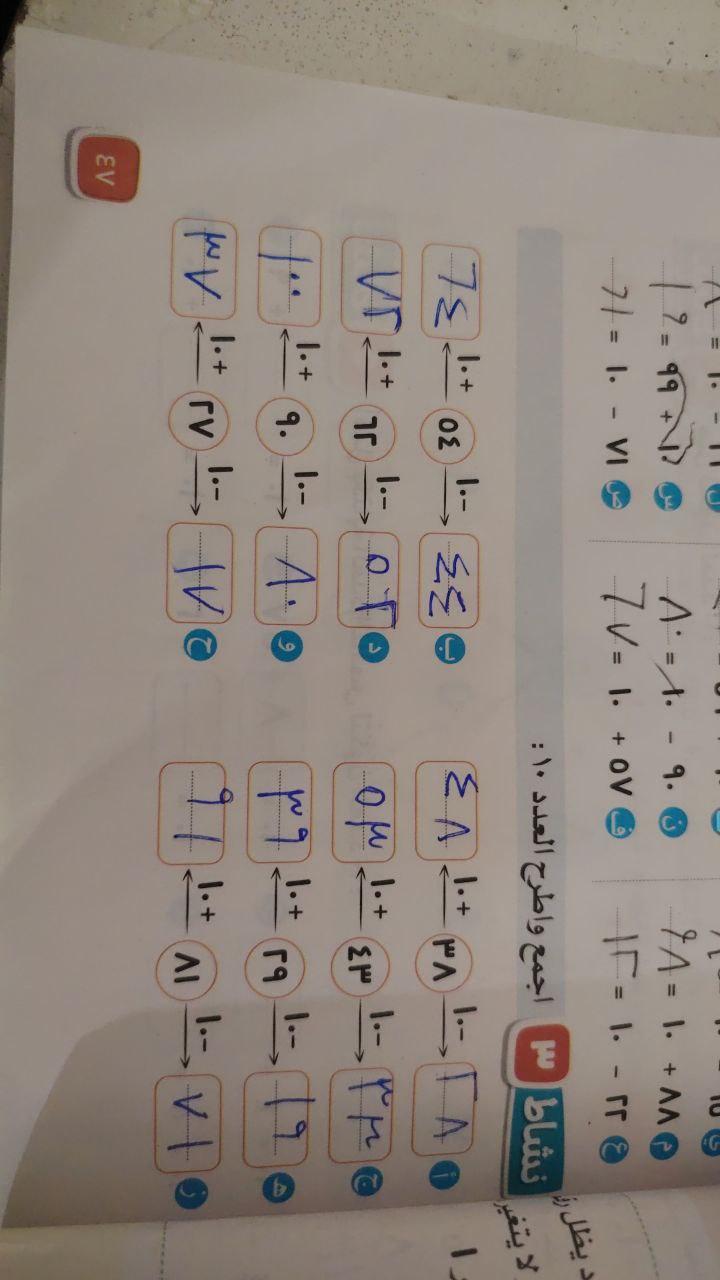 م ٨٨ + ١٠ = ٩٨ ن ٩٠ - ١٠ = ٨٠ س ١٠ + ٩٩ =
ع ٢٢ - ١٠ = ١٢ ف ٥٧ + ١٠ = ٦٧ ص ٧١ - ١٠ = ٦١
نشاط ٣ اجمع واطرح العدد ١٠ :
أ ٢٨ -١٠ ٣٨ +١٠ ٤٨ ب ٤٤ -١٠ ٥٤ +١٠ ٦٤
ج ٣٣ -١٠ ٤٣ +١٠ ٥٣ د ٥٢ -١٠ ٦٢ +١٠ ٧٢
هـ ١٩ -١٠ ٢٩ +١٠ ٣٩ و ٨٠ -١٠ ٩٠ +١٠ ١٠٠
ز ٧١ -١٠ ٨١ +١٠ ٩١ ح ١٧ -١٠ ٢٧ +١٠ ٣٧
٤٧
يظل
لا يتغير